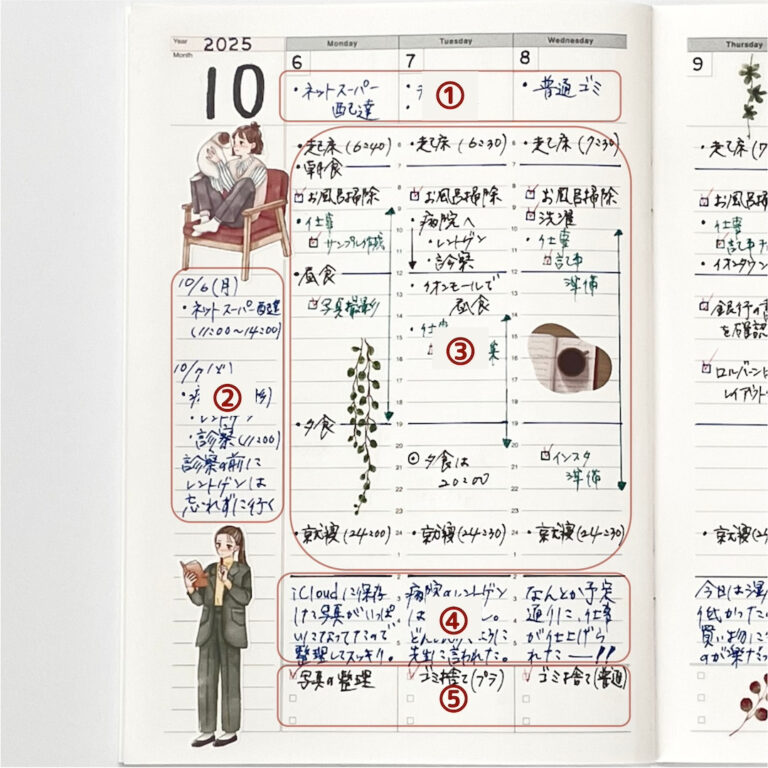 Year 2025
Month 10
Monday Tuesday Wednesday Thursday
6 7 8 9
・ネットスーパー
配達
①
・普通ゴミ
・起床(6:40)
・朝食
お風呂掃除
・仕事
サンプル作成
・昼食
写真撮影
・夕食
・就寝(24:00)
・起床(6:30)
お風呂掃除
・病院へ
・レントゲン
・診察
・イオンモールで
昼食
③
夕食は
20:00
・就寝(24:30)
・起床(7:30)
お風呂掃除
洗濯
・仕事
記事
準備
インスタ
準備
・就寝(24:30)
10/6(月)
・ネットスーパー配達
(11:00〜14:00)
②
・診察(11:00)
診察の前に
レントゲンは
忘れずに行く
iCloudに保存
した写真がいっぱ
いになってたので
整理してスッキリ。
病院のレントゲン
は
④
先生に言われた。
なんとか予定
通りに、仕事
が仕上げら
れたー!!
写真の整理
ゴミ捨て(プラ)
ゴミ捨て(普通)
⑤
・起床(7
お風呂掃
・仕事
・イオンタウン
銀行の
を確認
ロルバーン
レイアウト
・就寝(24
今日は
低かった
買い物に
のが楽だっ